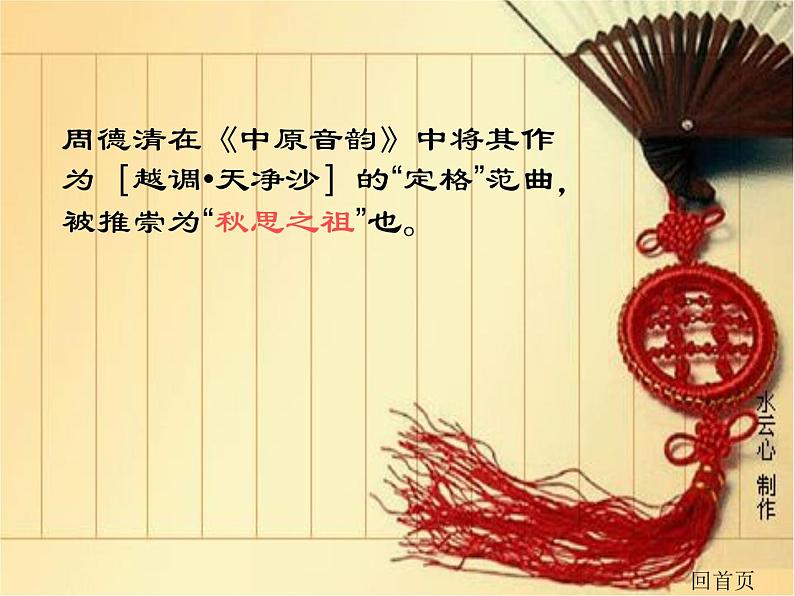 周德清在《中原音韵》中将其作
为［越调•天净沙］的“定格”范曲，
被推崇为“秋思之祖”也。
水云心 制作
回首页